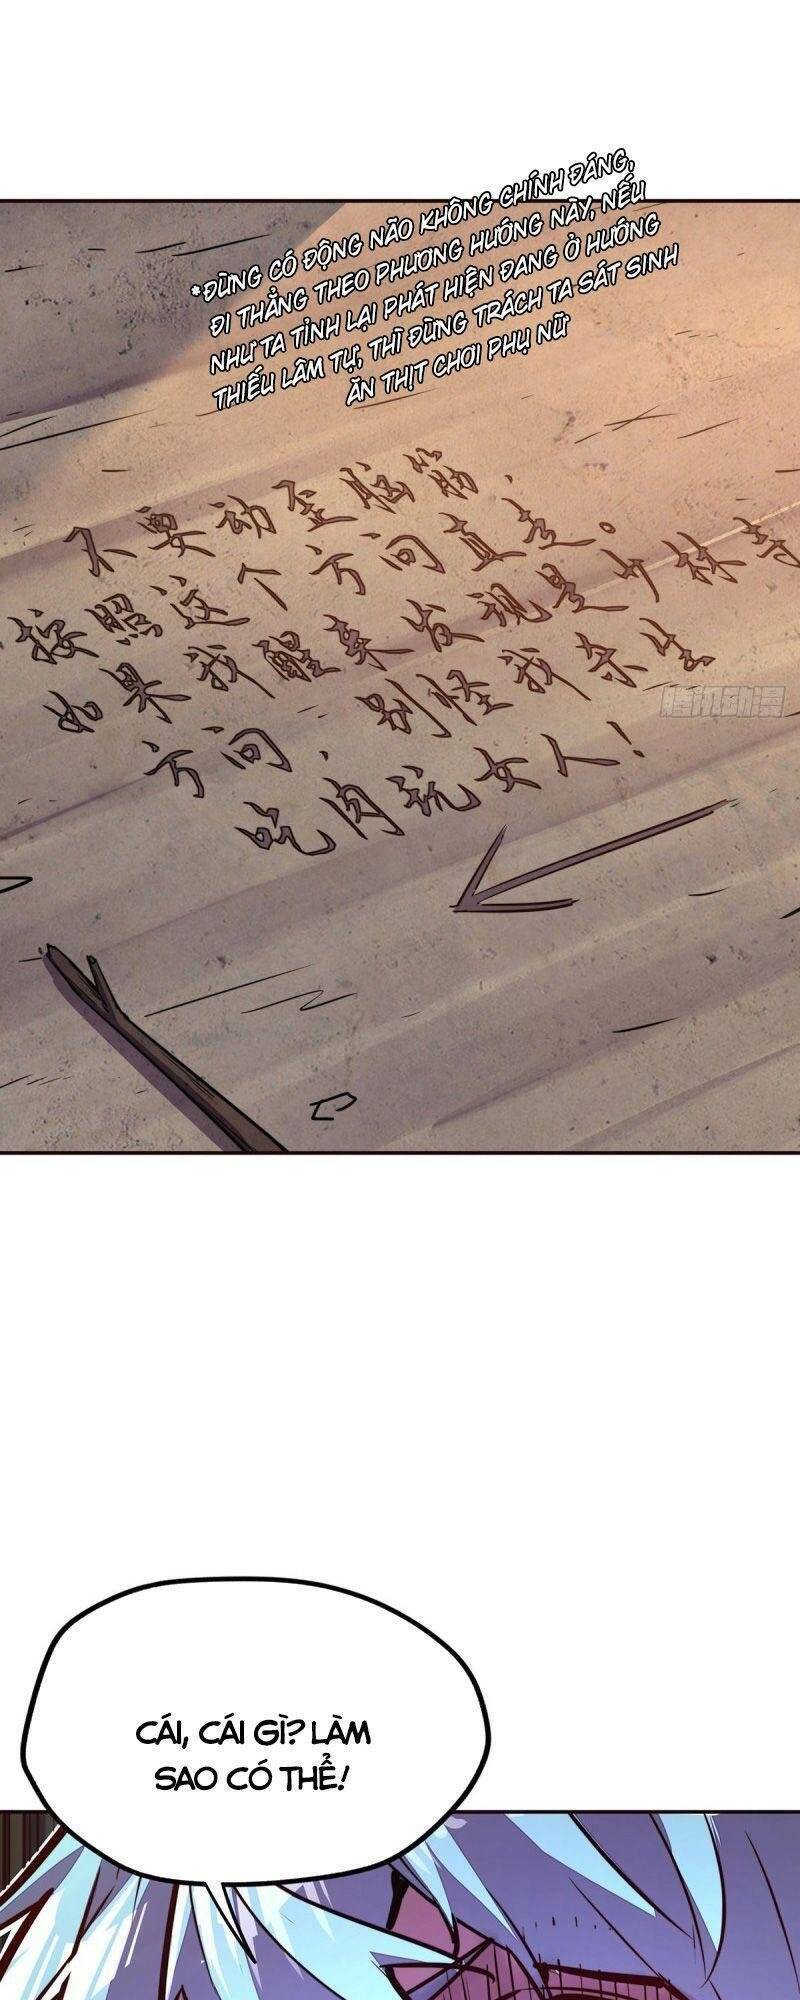 *ĐỪNG CÓ ĐỘNG NÃO KHÔNG CHÍNH ĐÁNG,
ĐI THẲNG THEO PHƯƠNG HƯỚNG NÀY, NẾU
NHƯ TA TỈNH LẠI PHÁT HIỆN ĐANG Ở HƯỚNG
THIẾU LÂM TỰ, THÌ ĐỪNG TRÁCH TA SÁT SINH
ĂN THỊT CHƠI PHỤ NỮ
不要动歪脑筋.
按照这个方向直走。
如果我醒来发现是少林寺
方向，别怪我杀生
吃肉玩女人！
腾讯动漫
CÁI, CÁI GÌ? LÀM
SAO CÓ THỂ!